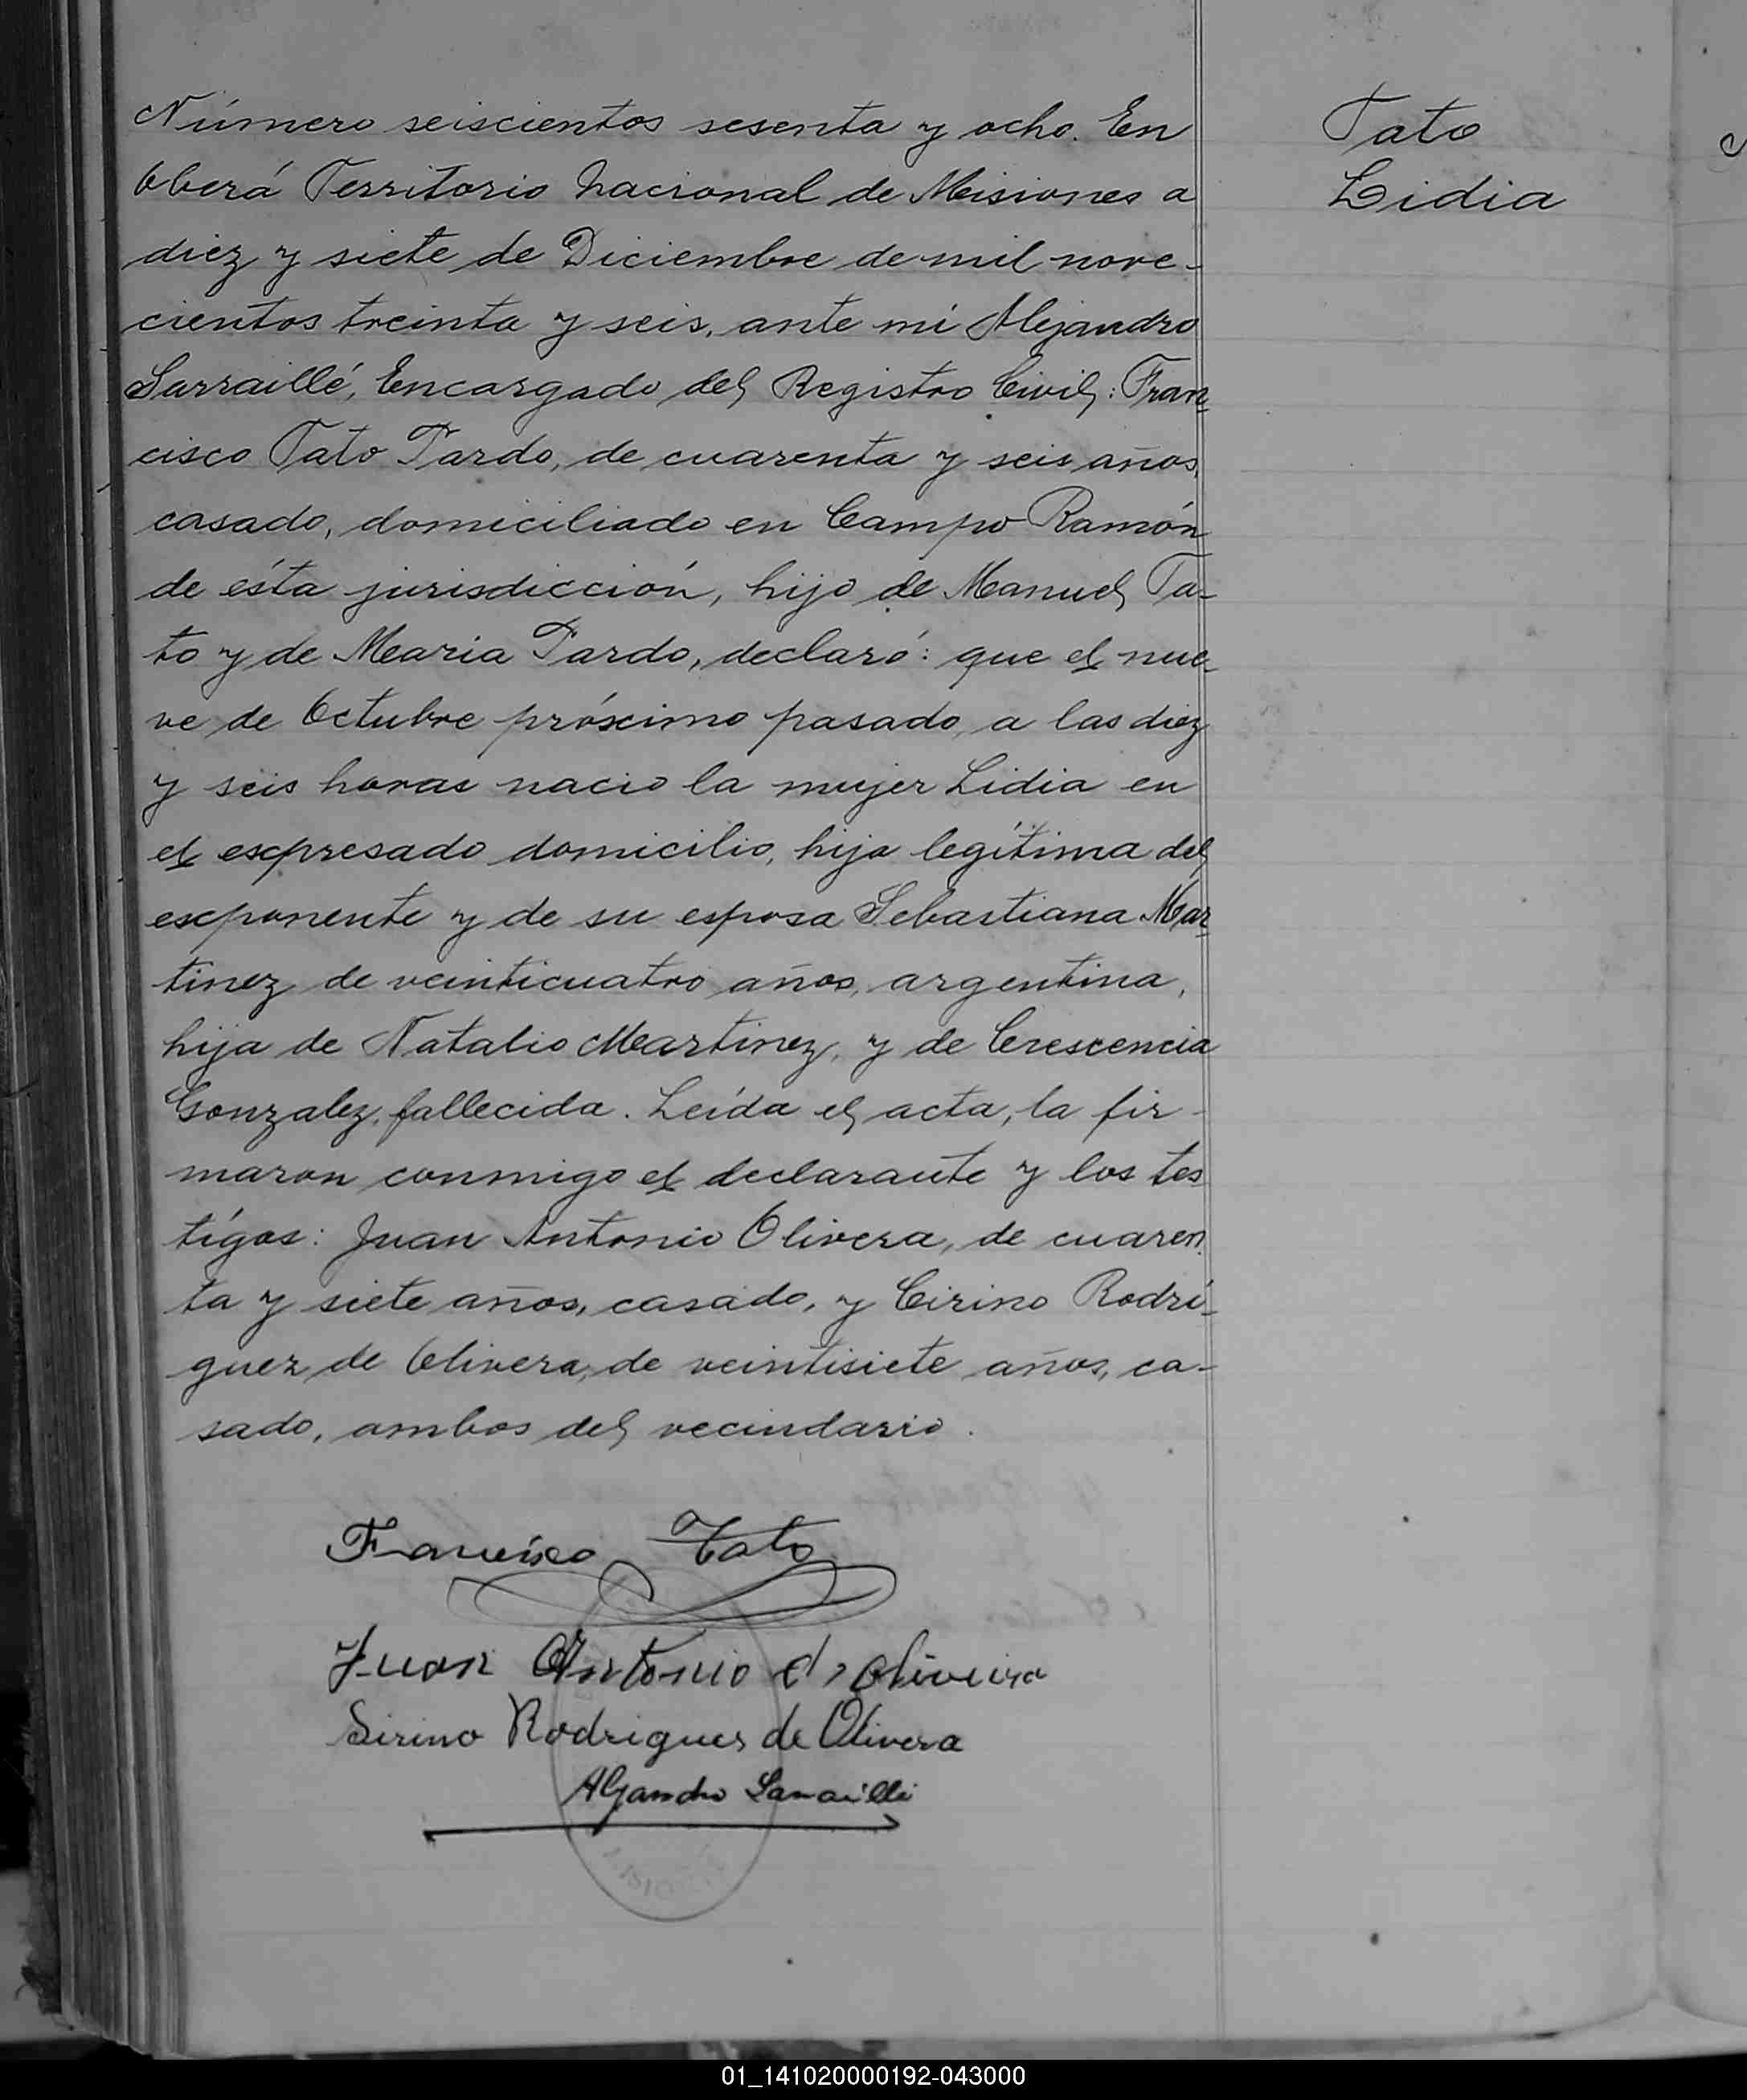 Número seiscientos sesenta y ocho. En
Oberá Territorio Nacional de Misiones a
diez y siete de Diciembre de mil nove-
cientos treinta y seis, ante mi Alejandro
Sarraillé, Encargado del Registro Civil: Fran-
cisco Tato Pardo, de cuarenta y seis años,
casado, domiciliado en Campo Ramón
de ésta jurisdicción, hijo de Manuel Ta-
to y de Maria Pardo, declaró: que el nue-
ve de Octubre próximo pasado, a las diez
y seis horas nacio la mujer Lidia en
el expresado domicilio, hija legítima del
exponente y de su esposa Sebastiana Mar-
tinez de veinticuatro años, argentina,
hija de Natalio Martinez, y de Crescencia
Gonzalez, fallecida. Leída el acta, la fir-
maron conmigo el declarante y los tes
tígos: Juan Antonio Olivera, de cuaren-
ta y siete años, casado, y Cirino Rodrí-
guez de Olivera, de veintisiete años, ca-
sado, ambos del vecindario.
Francisco Tato
Juan Antonio d, oliveira
Sirino Rodrigues de Olivera
Alejandro Sarraillé
Tato
Lidia
01_141020000192-043000